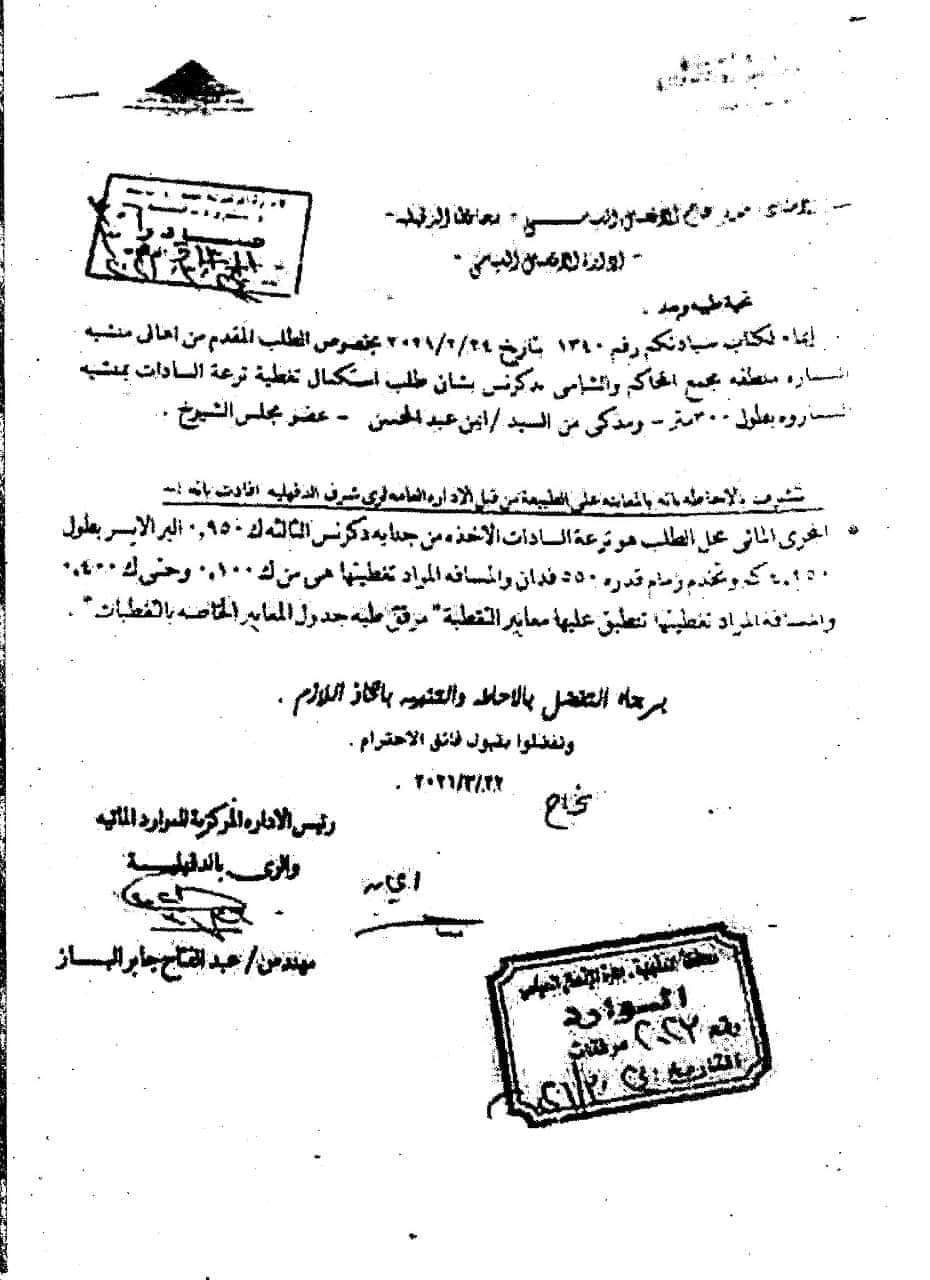 السيد / مدير عام الاتصال السياسى - محافظة الدقهلية -
- ادارة الاتصال السياسى -
تحية طيبه وبعد .
إيماء لكتاب سيادتكم رقم ١٣٤٠ بتاريخ ٢٠٢١/٢/٢٤ بخصوص الطلب المقدم من اهالى منشيه
منطقه مجمع المحاكم والشامى مدكرنس بشان طلب استكمال تغطية ترعة السادات بمنشيه
بطول ٣٠٠ متر - ومذكى من السيد / ايمن عبد المحسن - عضو مجلس الشيوخ .
نتشرف بالاحاطه بانه بالمعاينه على الطبيعة من قبل الاداره العامه لرى شرق الدقهليه افادت بانه :-
* المجرى المائى محل الطلب هو ترعة السادات الاخذه من جنابيه دكرنس الثالثه ك ٠,٩٥٠ البر الايسر بطول
وتخدم زمام قدره ٥٥٠ فدان والمسافه المراد تغطيتها هى من ك ٠,١٠٠ وحتى ك ٠,٤٠٠
والمسافه المراد تغطيتها تنطبق عليها معايير التغطية " مرفق طيه جدول المعايير الخاصه بالتغطيات " .
برجاء التفضل بالاحاطه والتنبيه باتخاذ اللازم .
وتفضلوا بقبول فائق الاحترام .
٢٠٢١/٣/٢٢ .
رئيس الاداره المركزية للموارد المائيه
والرى بالدقهليــة
مهندس / عبد الفتاح جابر البـاز
محافظة الدقهلية - إدارة الاتصال السياسى
الـــوارد
رقم ٢٠٢٧ مرفقات
التاريخ